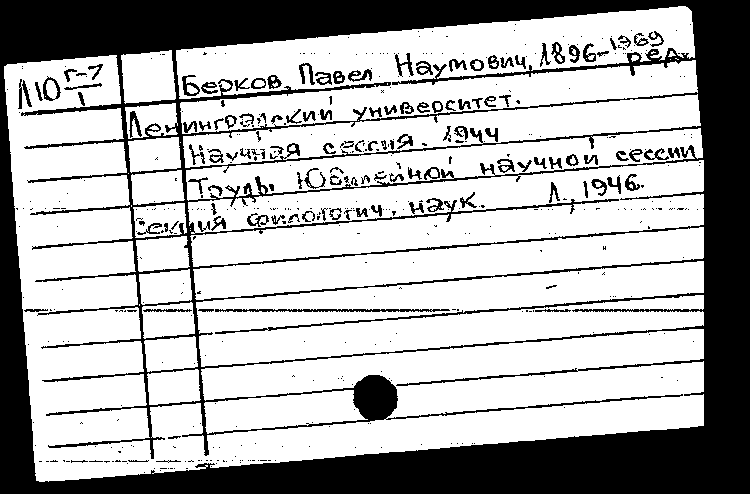 Л10 г-7/1 Берков, Павел Наумович, 1896-1969 ред.
Ленинградский университет.
Научная сессия. 1944
Труды Юбилейной научной сессии
Секция филологич. наук. Л., 1946.